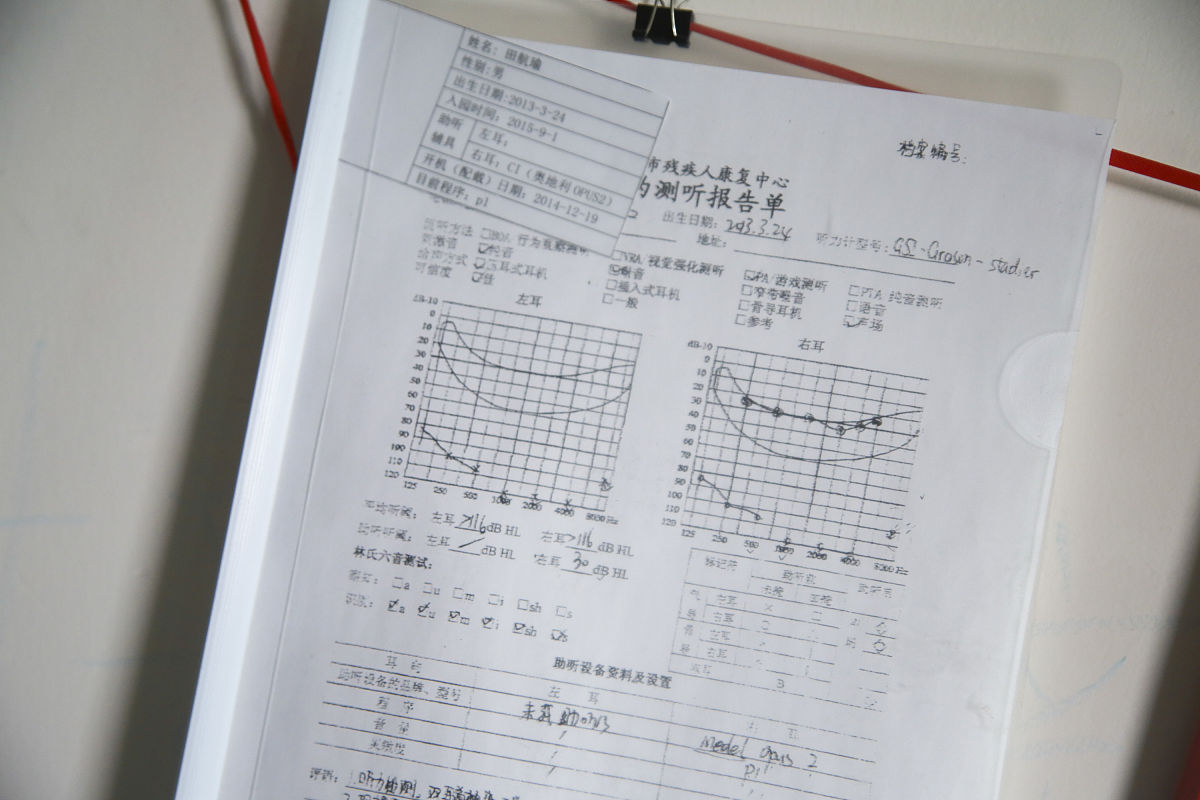 姓名：田航瑜
性别：男
出生日期：2013-3-24
入园时间：2015-9-1
助听辅具
左耳：
右耳：CI（奥地利OPUS2）
开机（配戴）日期：2014-12-19
目前程序：p1
档案编号：
市残疾人康复中心
测听报告单
出生日期：2013.3.24
地址：
听力计型号：GSI-Grason-stadler
测听方法 □BOA/行为观察测听 □VRA/视觉强化测听 ☑PA/游戏测听 □PTA/纯音测听
刺激音 ☑纯音 ☑啭音 □窄带噪音 □语音
给声方式 ☑压耳式耳机 □插入式耳机 □骨导耳机 ☑声场
可信度 ☑佳 □一般 □参考
左耳
dB-10
0
10
20
30
40
50
60
70
80
90
100
110
120
125 250 500 1000 2000 4000 8000 Hz
右耳
dB-10
0
10
20
30
40
50
60
70
80
90
100
110
120
125 250 500 1000 2000 4000 8000 Hz
平均听阈： 左耳 >116 dB HL 右耳 >116 dB HL
助听听阈： 左耳 / dB HL 右耳 30 dB HL
林氏六音测试：
察知： □a □u □m □i □sh □s
识别： ☑a ☑u ☑m ☑i ☑sh ☑s
标记符 助听前 助听后
未掩 掩
气导 左耳 ×
右耳
骨导 左耳
右耳
助听设备资料及设置
耳别 左耳 右耳
助听设备的品牌、型号 Medel Opus 2
程序 / P1
音量 /
灵敏度 /
评语：1.听力检测，双耳